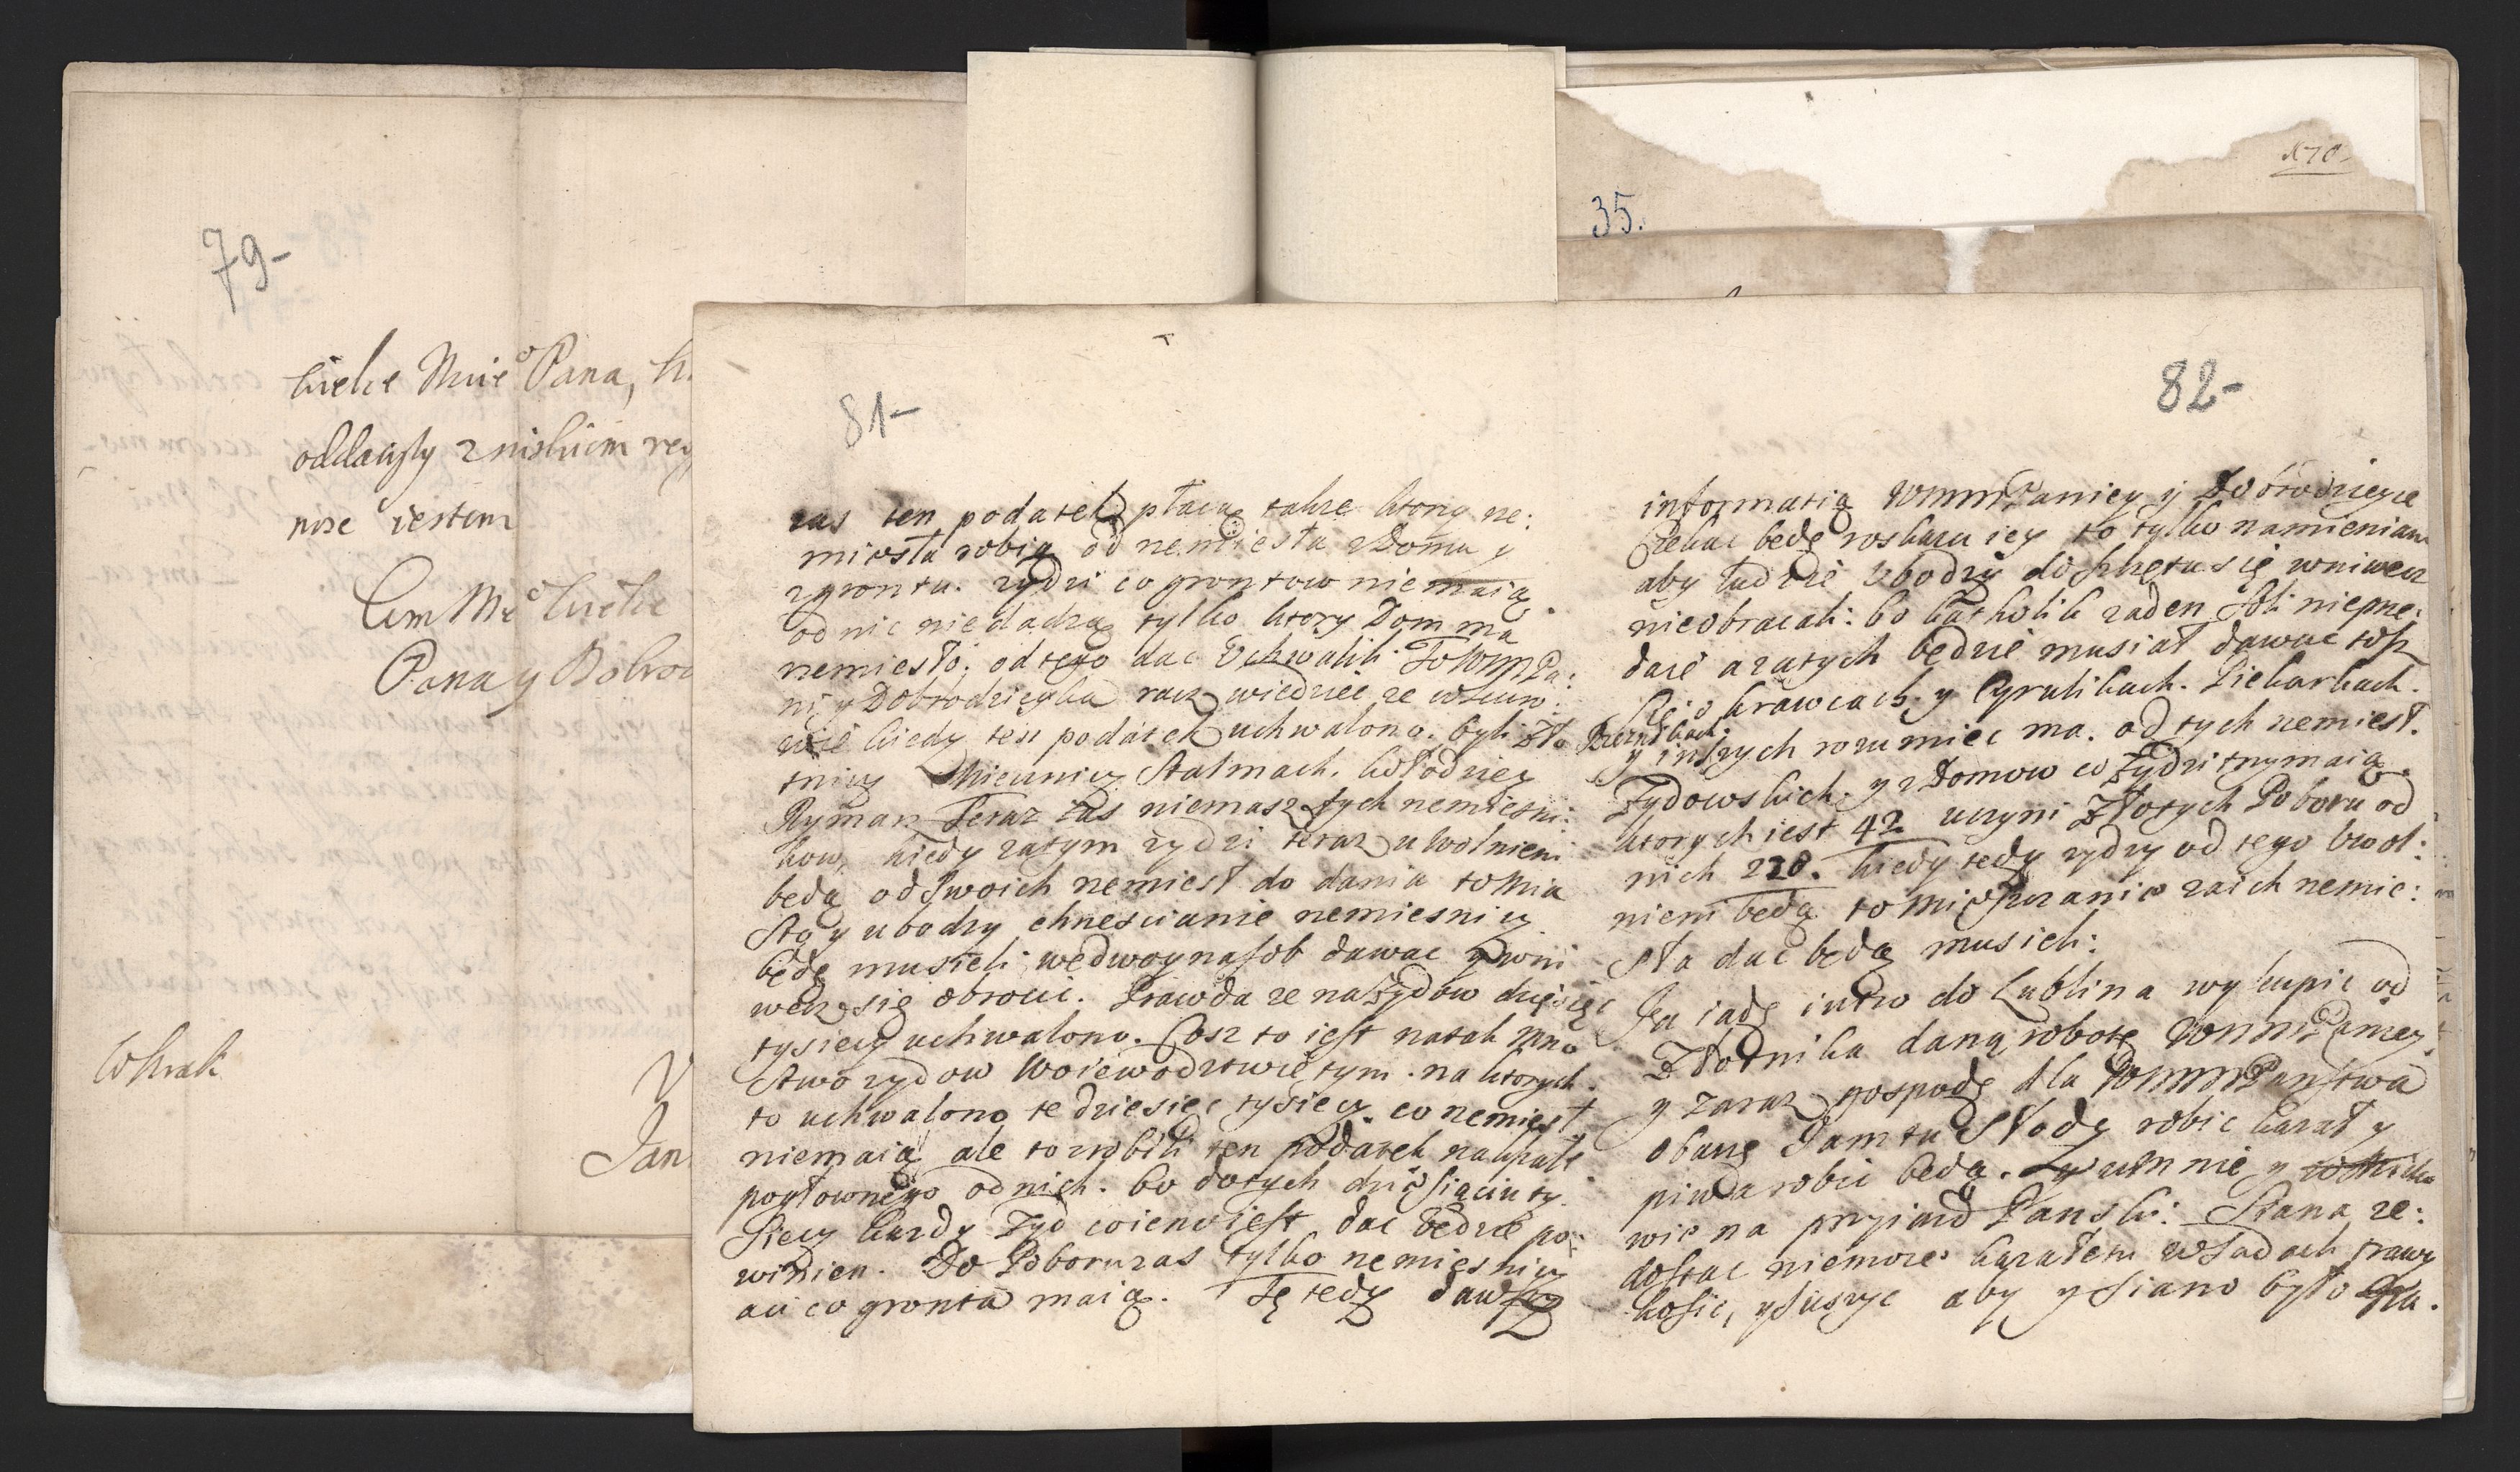 79-
wielce Mnie Pana,
oddawszy z niskiem
nose iestem
Wm Mc wielce
Pana y Dobrod
Jan
35.
81-
zas ten podatek płacą takze ktory rze:
miosła robią od rzemiesła z Domu y
z grontu. zydzi co grontow niemaią
od nic niedadzą tylko ktory Dom ma
rzemiesło. od tego dac Uchwalili. To WmmPa:
ni y Dobrodzieyka racz wiedziec ze
kiedy ten podatek uchwalono. byli Zło
tnicy Stalmach. Kołodziey
Rymarz Teraz zas niemasz tych rzemiesni:
kow, kiedy zatym zydzi teraz uwolnieni
będą od swoich rzemiesł do dania to Mia
sto y ubodzy chrzescianie rzemiesnicy
będę musieli wedwoynasob dawac y wni
wecz się obrocic. Prawda ze na Zydow dziesięc
tysięcy uchwalono. Cosz to iest natak mno
stwo zydow Woiewodztwie tym. na ktorych
to uchwalono te dziesięc tysięcy. co rzemiesł
niemaią ale to zrobili ten podatek nakształt
pogłownego od nich. bo dotych dziesiąciu ty:
sięcy kazdy Zyd co ieno iest, dac będzie po:
winien. Do Poboru zas tylko rzemiesnicy
aci co gronta maią. Tę tedy dawszy
82-
informatią WmmPaniey y Dobrodzieyce
Czekac będę roskazu iey to tylko namieniam
aby ludzie Vbodzy do szczętu się wniwecz
nieobracali: bo katholik zaden Soli nieprze:
daie a zatych będzie musiał dawac tosz
się o krawcach, y Cyrulikach. Piekarkach.
y inszych rozumiec ma. od tych rzemiesł.
Zydowskich. y z Domow co Zydzi trzymaią
ktorych iest 42 uczyni Złotych Poboru od
nich 228. kiedy tedy zydzy od tego uwol:
nieni będą to Mieszczanie zaich rzemie:
sła dac będą musieli:
Ja iadę iutro do Lublina wykupic od
Złotnika daną robotę WmmPaniey
y zaraz gospodę dla WmmPanstwa
obaczę Jam tu Słody robic kazał y
piwa robic będą.
wie na przyiazd Panski: Siana ze:
dostac niemoze kazałem w Sadach trawy
kosic, ysuszyc aby y siano było